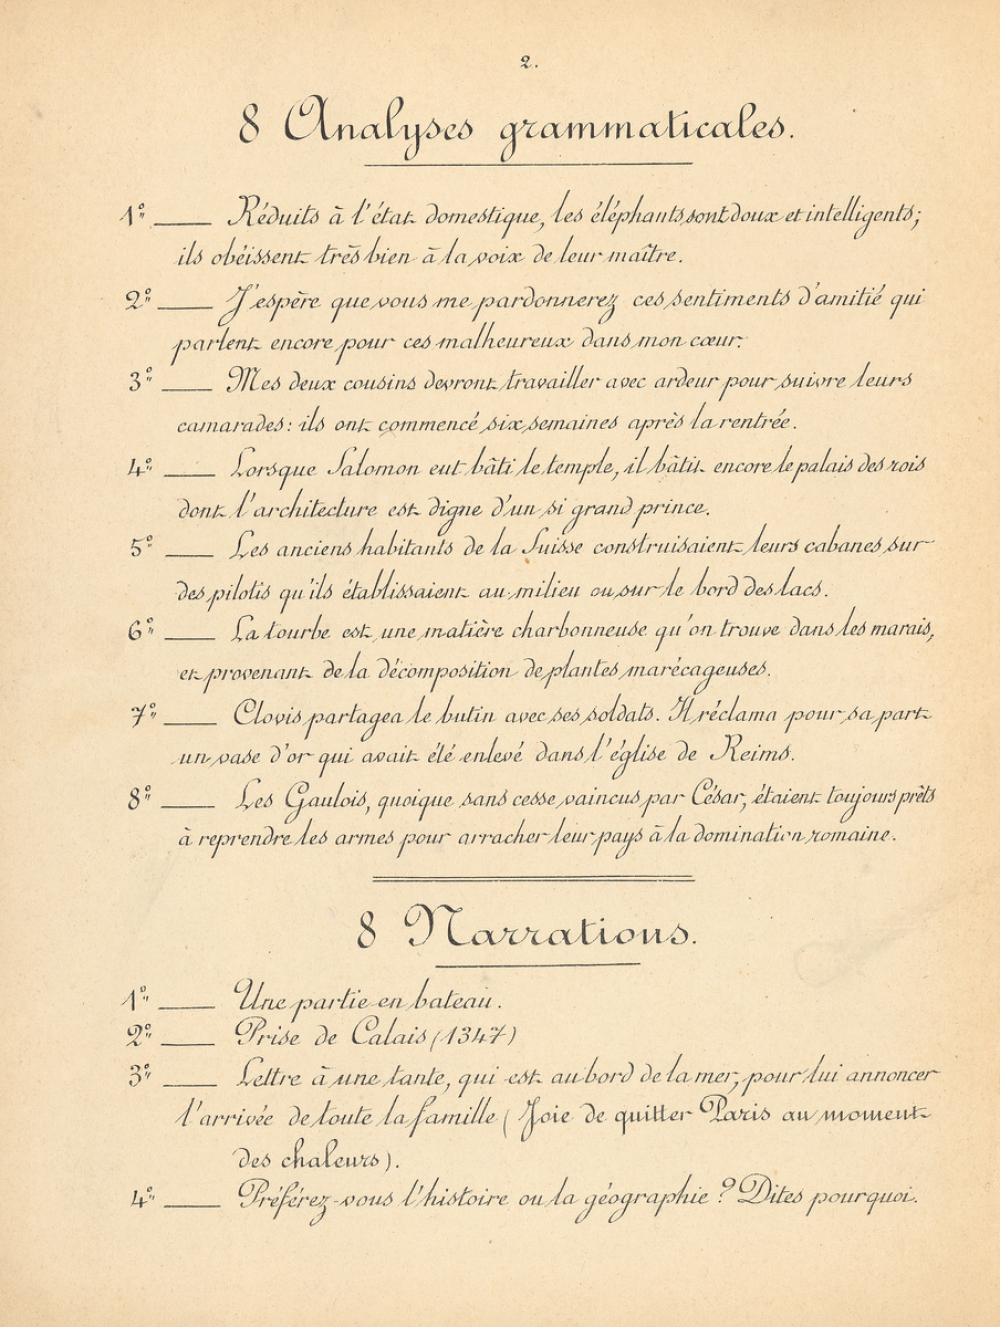 2.
8 Analyses grammaticales.
1º ___ Réduits à l'état domestique, les éléphants sont doux et intelligents;
ils obéissent très bien à la voix de leur maître.
2º ___ J'espère que vous me pardonnerez ces sentiments d'amitié qui
parlent encore pour ces malheureux dans mon cœur.
3º ___ Mes deux cousins devront travailler avec ardeur pour suivre leurs
camarades: ils ont commencé six semaines après la rentrée.
4º ___ Lorsque Salomon eut bâti le temple, il bâtit encore le palais des rois
dont l'architecture est digne d'un si grand prince.
5º ___ Les anciens habitants de la Suisse construisaient leurs cabanes sur
des pilotis qu'ils établissaient au milieu ou sur le bord des lacs.
6º ___ La tourbe est une matière charbonneuse qu'on trouve dans les marais,
et provenant de la décomposition de plantes marécageuses.
7º ___ Clovis partagea le butin avec ses soldats. Il réclama pour sa part
un vase d'or qui avait été enlevé dans l'église de Reims.
8º ___ Les Gaulois, quoique sans cesse vaincus par César, étaient toujours prêts
à reprendre les armes pour arracher leur pays à la domination romaine.
8 Narrations.
1º ___ Une partie en bateau.
2º ___ Prise de Calais (1347)
3º ___ Lettre à une tante, qui est au bord de la mer, pour lui annoncer
l'arrivée de toute la famille (Joie de quitter Paris au moment
des chaleurs).
4º ___ Préférez-vous l'histoire ou la géographie? Dites pourquoi.